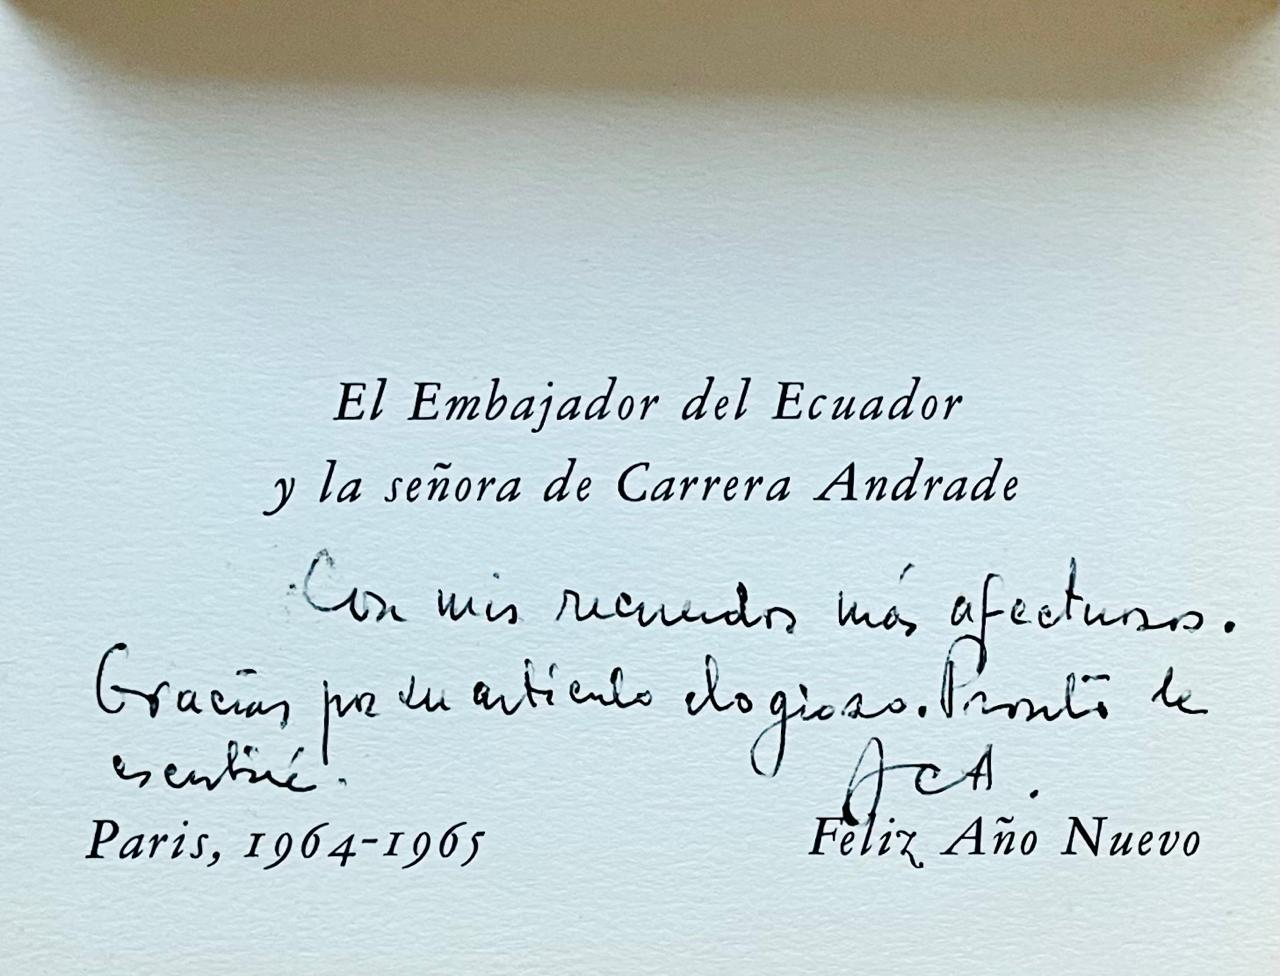 El Embajador del Ecuador
y la señora de Carrera Andrade
Con mis recuerdos más afectuosos.
Gracias por su artículo elogioso. Pronto le
escribiré.
JCA.
Paris, 1964-1965
Feliz Año Nuevo